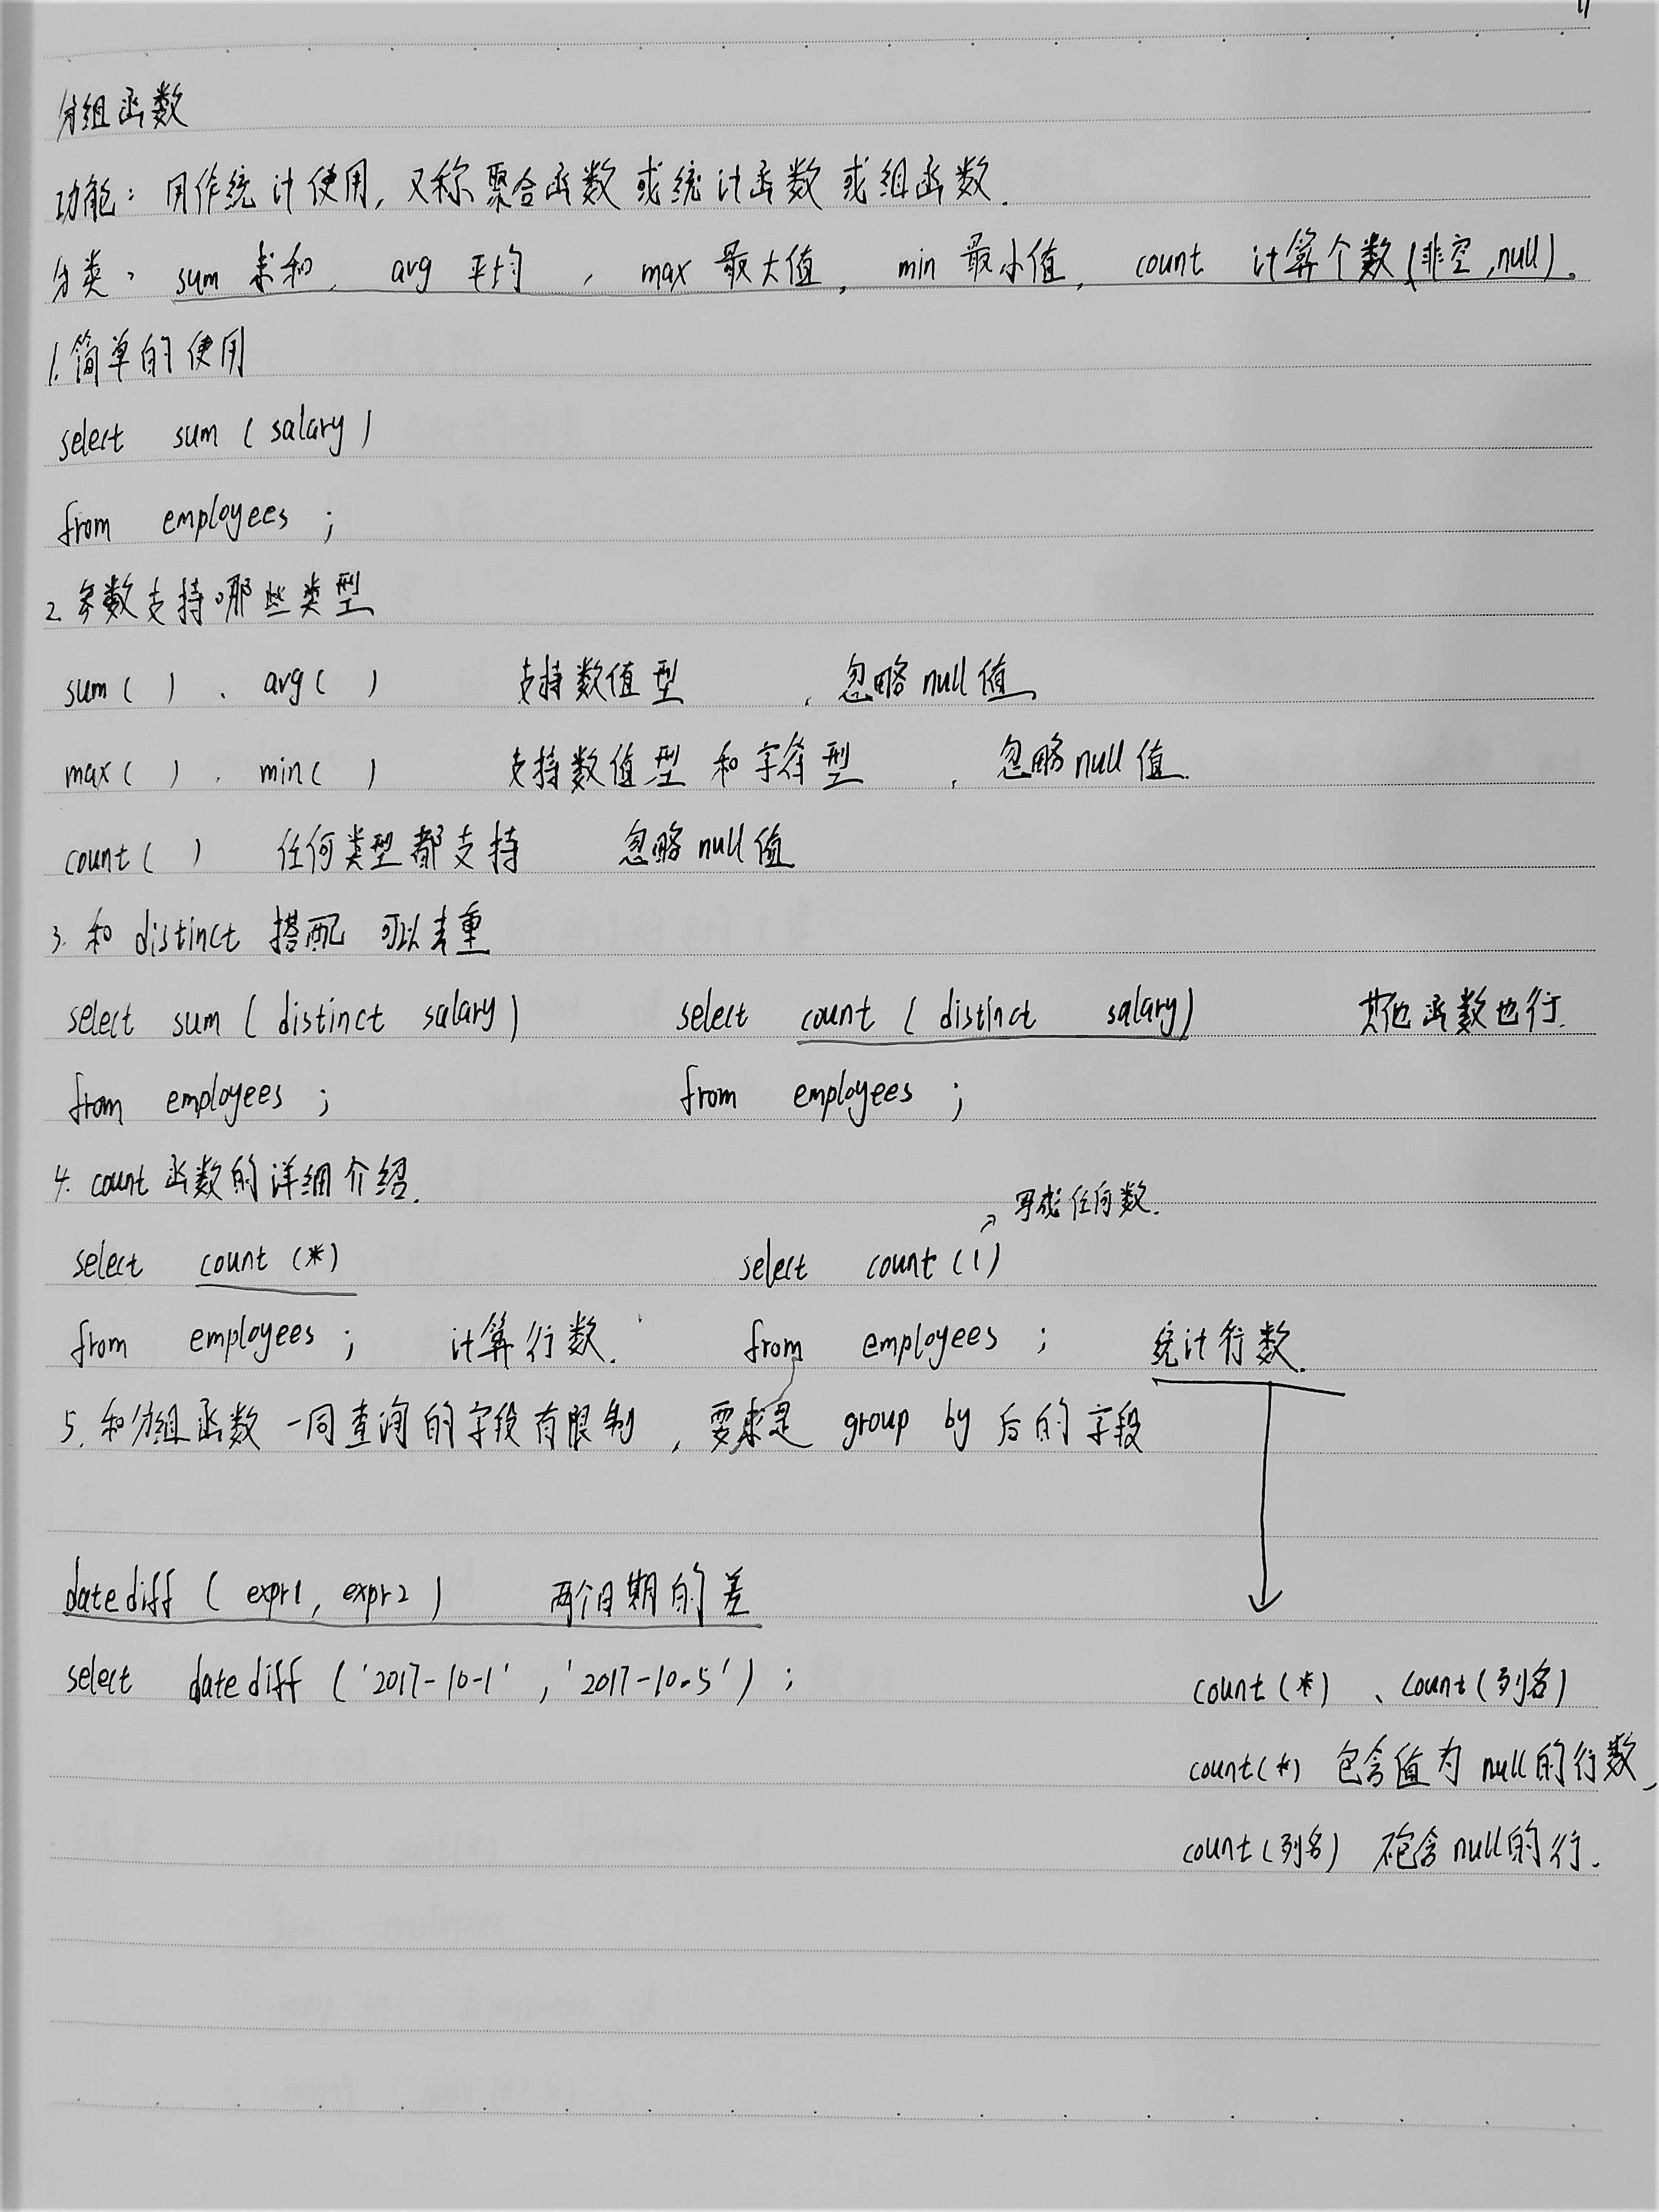 分组函数
功能：用作统计使用，又称聚合函数或统计函数或组函数.
分类：sum 求和，avg 平均，max 最大值，min 最小值，count 计算个数(非空,null)。
1.简单的使用
select sum (salary)
from employees ;
2.参数支持哪些类型
sum( ) 、avg( ) 支持数值型 ，忽略null值
max( ) 、min( ) 支持数值型和字符型 ，忽略null值.
count( ) 任何类型都支持 忽略null值
3. 和 distinct 搭配 可以去重
select sum (distinct salary) select count (distinct salary) 其他函数也行.
from employees ; from employees ;
4. count 函数的详细介绍.
写成任何数.
select count (*) select count (1)
from employees ; 计算行数. from employees ; 统计行数.
5. 和分组函数一同查询的字段有限制，要求是 group by 后的字段
datediff ( expr1, expr2 ) 两个日期的差
select datediff ('2017-10-1' , '2017-10-5') ;
count(*) 、count(列名)
count(*) 包含值为 null的行数,
count(列名) 不包含null的行.